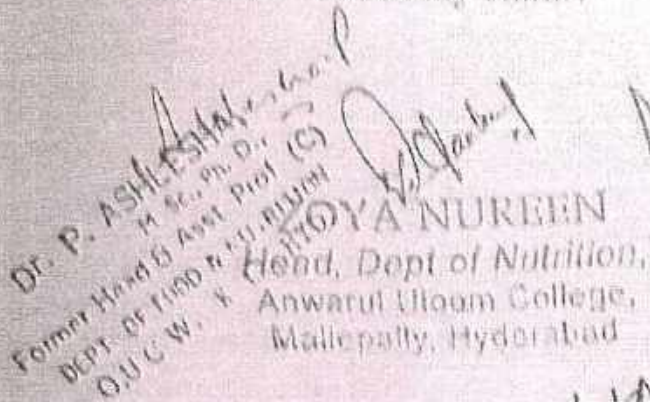 Dr. P. ASHLESHA
M Sc., Ph. D.,
Former Head & Asst Prof (C)
DEPT. OF FOOD & NUTRITION
O.U C W. K
ZOYA NUREEN
Head, Dept of Nutrition,
Anwarul Uloom College,
Mallepally, Hyderabad